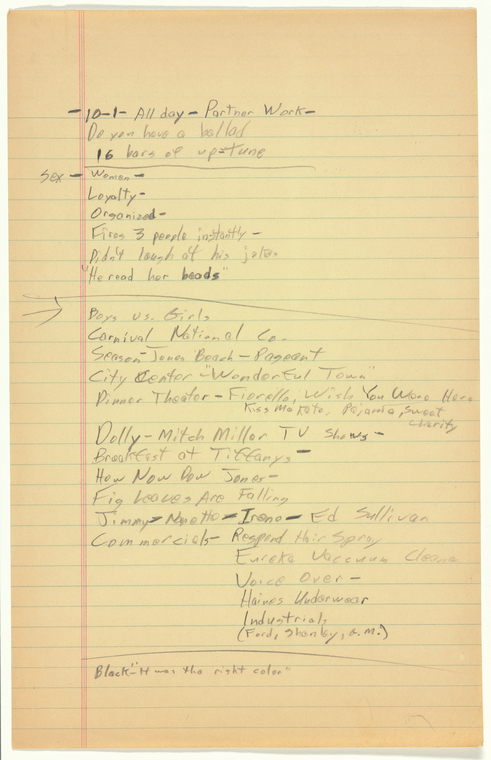 - 10-1- All day - Partner Work -
Do you have a ballad
16 bars of up-tune
Sex - Woman -
Loyalty -
Organized -
Fires 3 people instantly -
Didn't laugh at his jokes
"He read her beads"
Boys vs. Girls
Carnival National Co.
Season - Jones Beach - Pageant
City Center - "Wonderful Town"
Dinner Theater - Fiorello, Wish You Were Here
Kiss Me Kate, Pajama, Sweet
Charity
Dolly - Mitch Miller TV Shows -
Breakfast at Tiffanys -
How Now Dow Jones -
Fig Leaves Are Falling
Jimmy - Irene - Ed Sullivan
Commercials - Respond Hair Spray
Eureka Vaccum Cleane
Voice Over -
Haines Underwear
Industrials
(Ford, G.M.)
Black - "It was the right color"